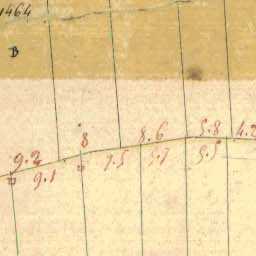 1464
B
8.6 5.8 4.2
9.2 8
9.1 7.5 5.7 5.5